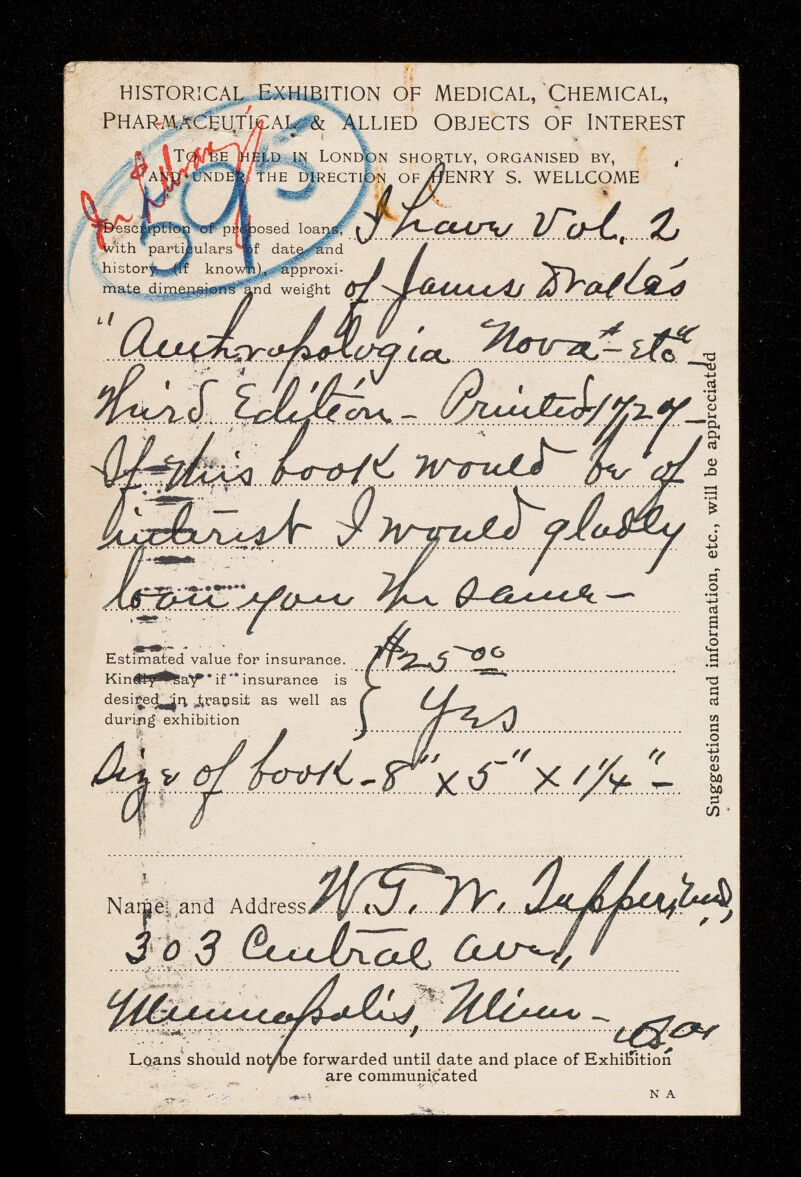 HISTORICAL EXHIBITION OF MEDICAL, CHEMICAL,
PHARMACEUTICAL & ALLIED OBJECTS OF INTEREST
TO BE HELD IN LONDON SHORTLY, ORGANISED BY,
AND UNDER THE DIRECTION OF HENRY S. WELLCOME
In Library
595
Description of proposed loans,
with particulars of date and
history (if known), approxi-
mate dimensions and weight
I have Vol. 2
of James Drake's
"Anthropologia Nova" - etc"
Third Edition - Printed 1727 -
If this book would be of
interest I would gladly
loan you the same -
Estimated value for insurance.
Kindly say if insurance is
desired in transit as well as
during exhibition
$25 00
Yes
Size of book - 8" x 5" x 1 1/4" -
Name and Address W. G. W. Tupper,
303 Central Ave.,
Minneapolis, Minn -
Loans should not be forwarded until date and place of Exhibition
are communicated
N A
Suggestions and information, etc., will be appreciated